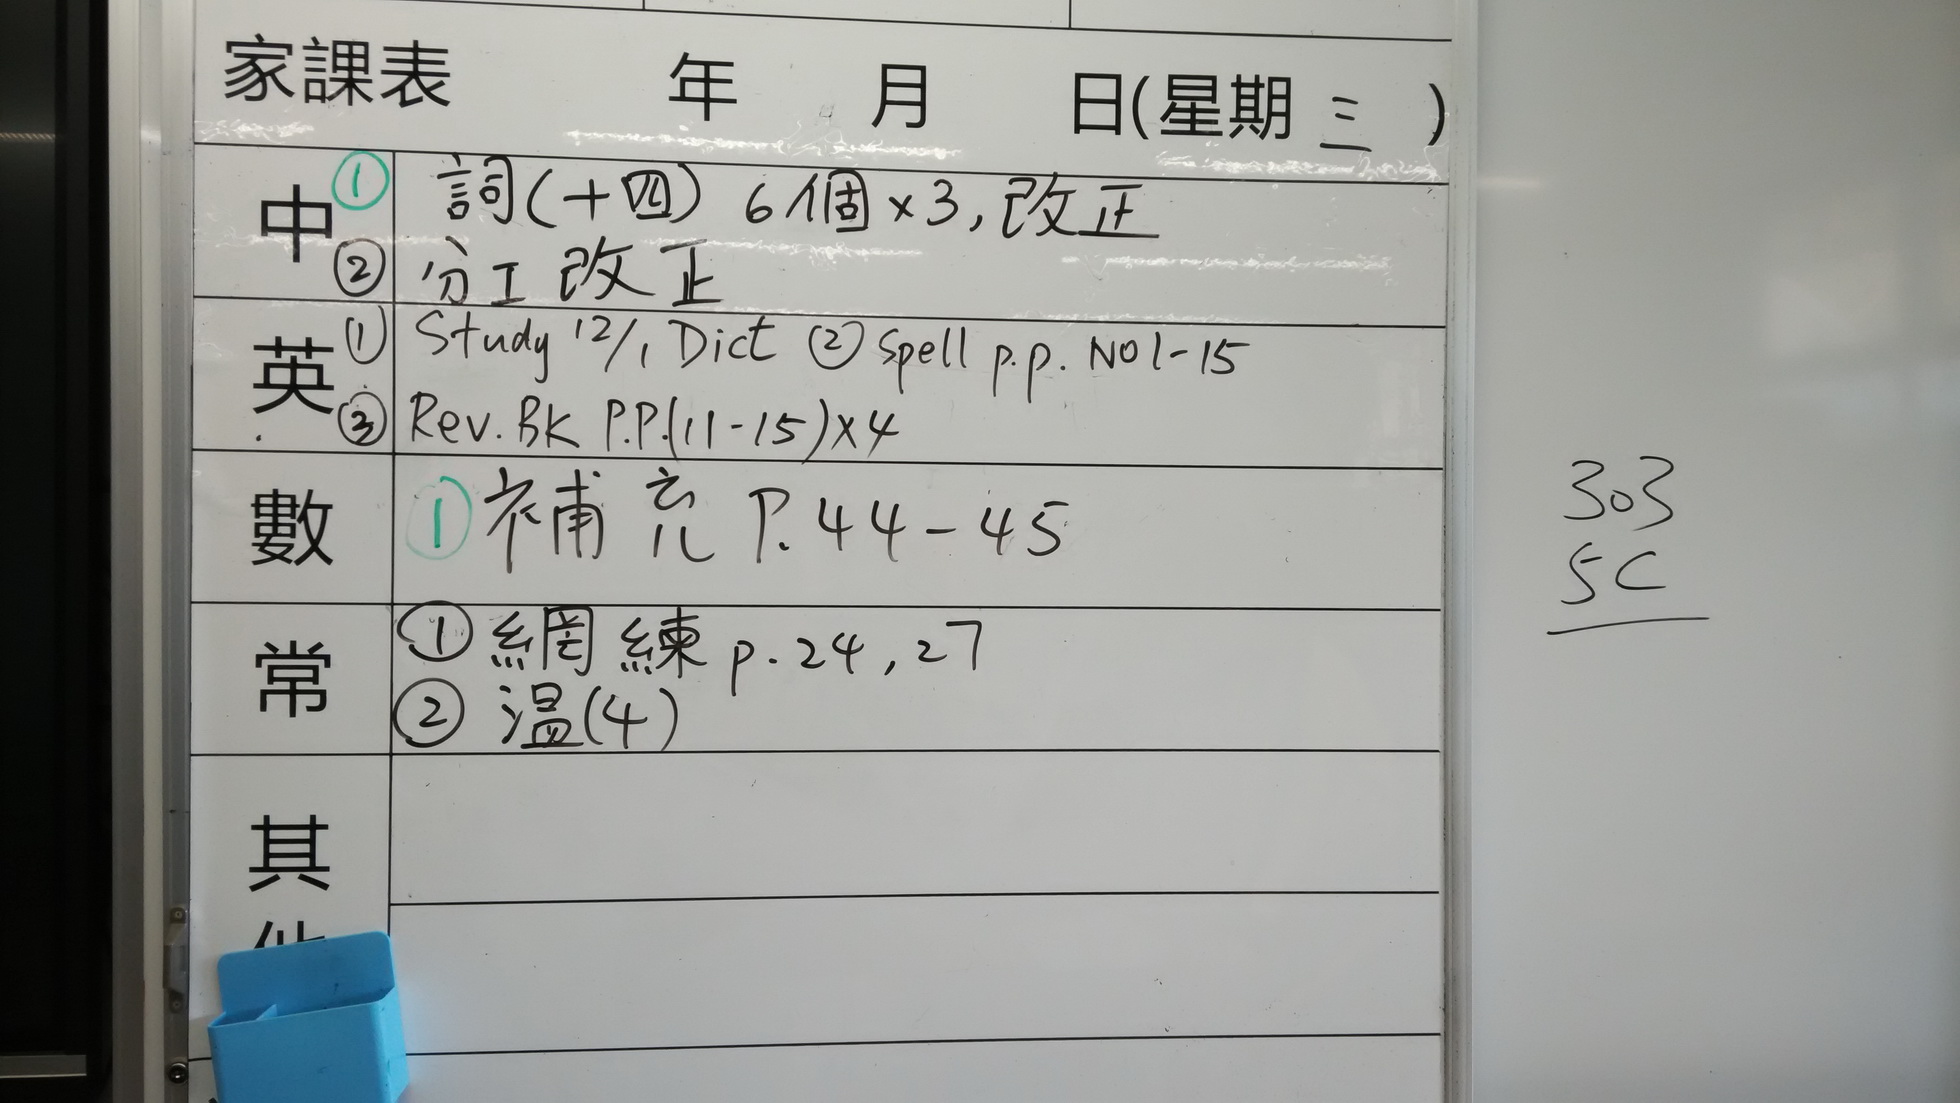 家課表 年 月 日(星期 三 )
中 ① 詞(十四) 6個×3,改正
② 分工改正
英 ① Study 12/1 Dict ② Spell p.p. NO1-15
③ Rev. BK P.P.(11-15)×4
數 ① 補充 P.44-45
常 ① 網練 p.24,27
② 溫(4)
其
303
5C